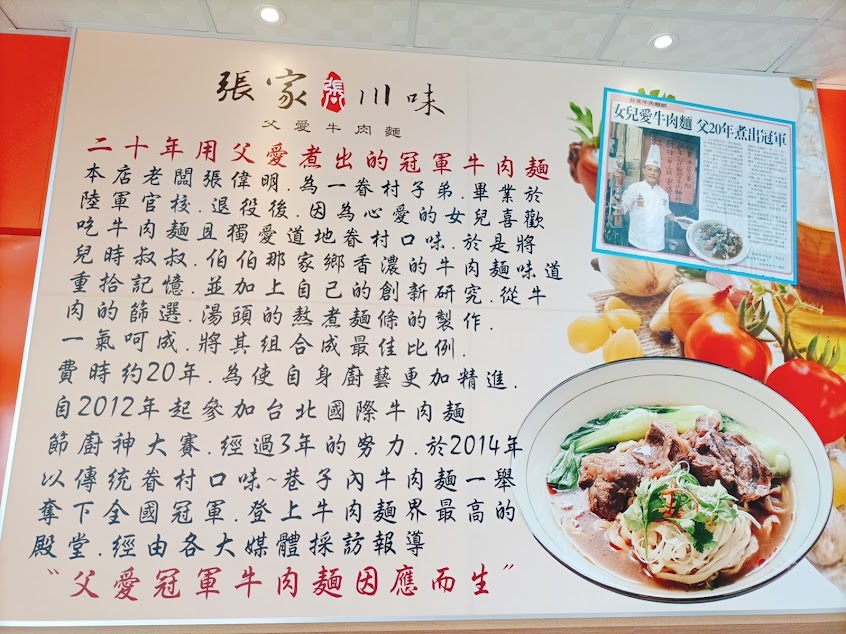 張家張川味
父愛牛肉麵
二十年用父愛煮出的冠軍牛肉麵
本店老闆張偉明.為一眷村子弟.畢業於
陸軍官校.退役後.因為心愛的女兒喜歡
吃牛肉麵且獨愛道地眷村口味.於是將
兒時叔叔.伯伯那家鄉香濃的牛肉麵味道
重拾記憶.並加上自己的創新研究.從牛
肉的篩選.湯頭的熬煮麵條的製作.
一氣呵成.將其組合成最佳比例.
費時約20年.為使自身廚藝更加精進.
自2012年起參加台北國際牛肉麵
節廚神大賽.經過3年的努力.於2014年
以傳統眷村口味~巷子內牛肉麵一舉
奪下全國冠軍.登上牛肉麵界最高的
殿堂.經由各大媒體採訪報導
"父愛冠軍牛肉麵因應而生"
女兒愛牛肉麵 父20年煮出冠軍